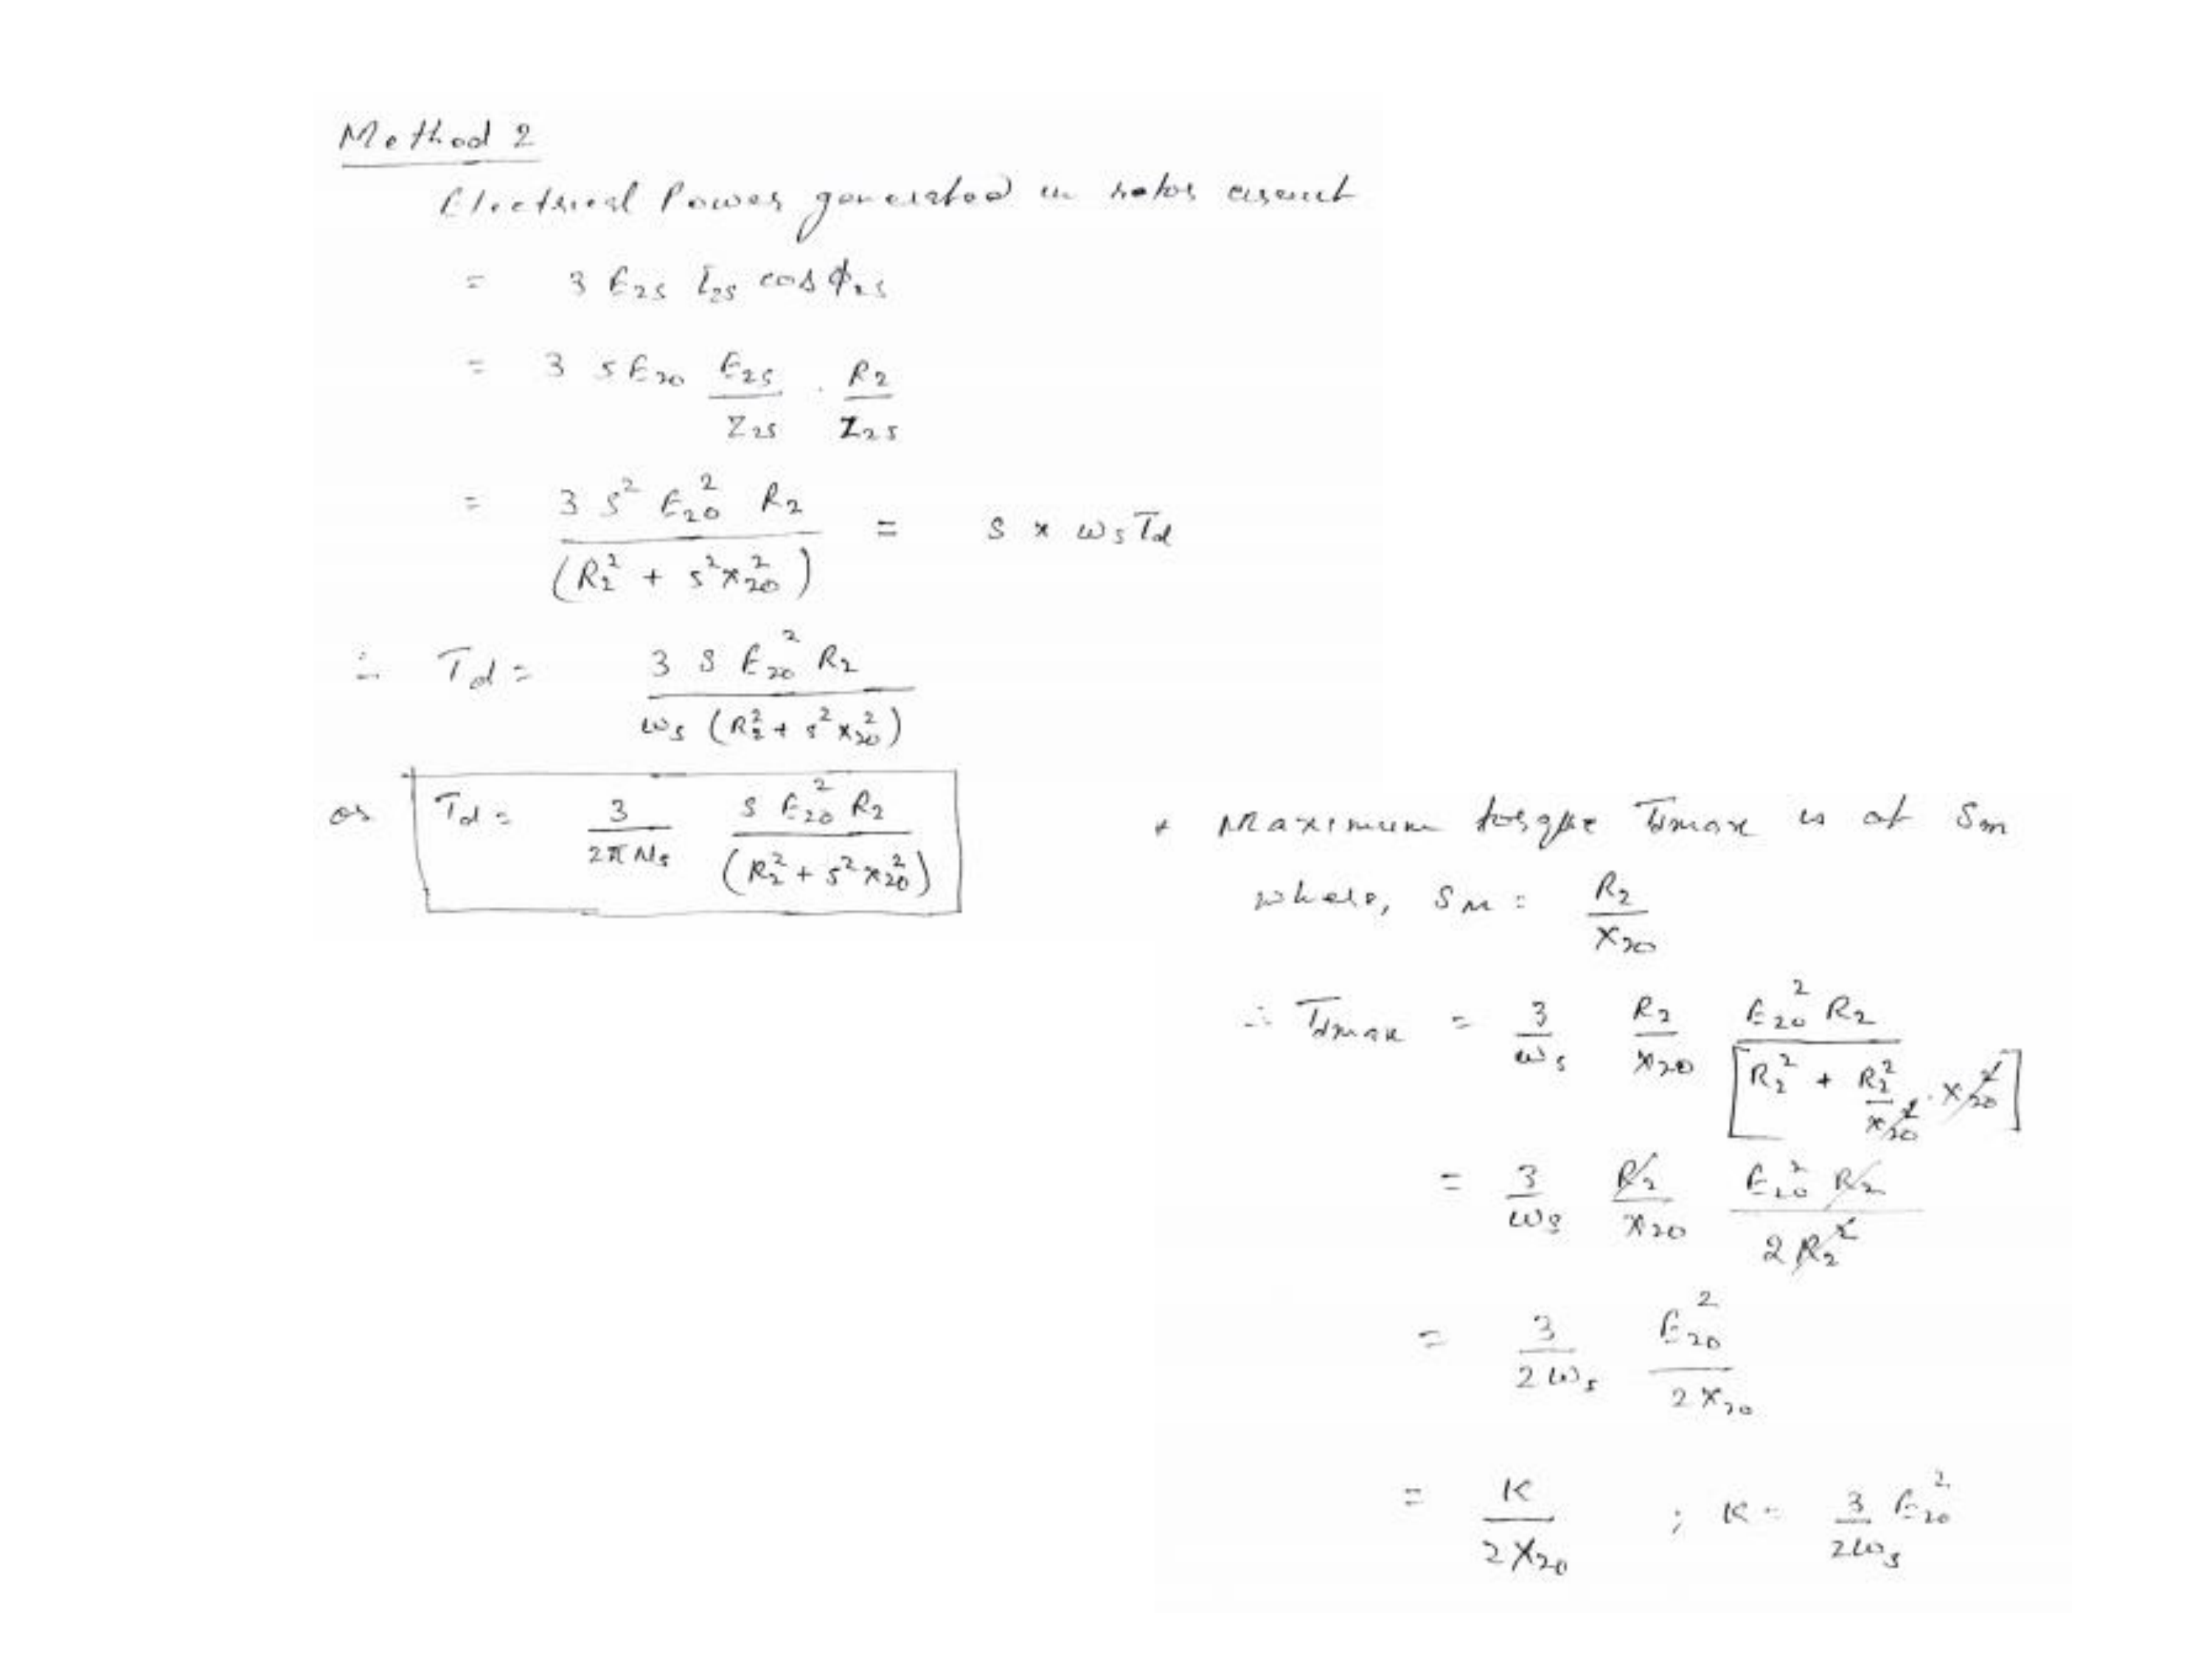 Method 2
Electrical Power generated in rotor circuit
= 3 E₂ₛ I₂ₛ cos ϕ₂ₛ
= 3 s E₂₀ E₂ₛ/Z₂ₛ · R₂/Z₂ₛ
= 3 s² E₂₀² R₂ / (R₂² + s² x₂₀²) = s × ωₛ T_d
∴ T_d = 3 s E₂₀² R₂ / ωₛ (R₂² + s² x₂₀²)
or T_d = 3/2πNₛ s E₂₀² R₂ / (R₂² + s² x₂₀²)
* Maximum torque T_dmax is at s_m
where, s_m = R₂/X₂₀
∴ T_dmax = 3/ωₛ R₂/x₂₀ E₂₀² R₂ / [R₂² + R₂²/x₂₀² · x₂₀²]
= 3/ωₛ R₂/x₂₀ E₂₀² R₂ / 2 R₂²
= 3/2ωₛ E₂₀²/2x₂₀
= K/2X₂₀ ; K = 3/2ωₛ E₂₀²